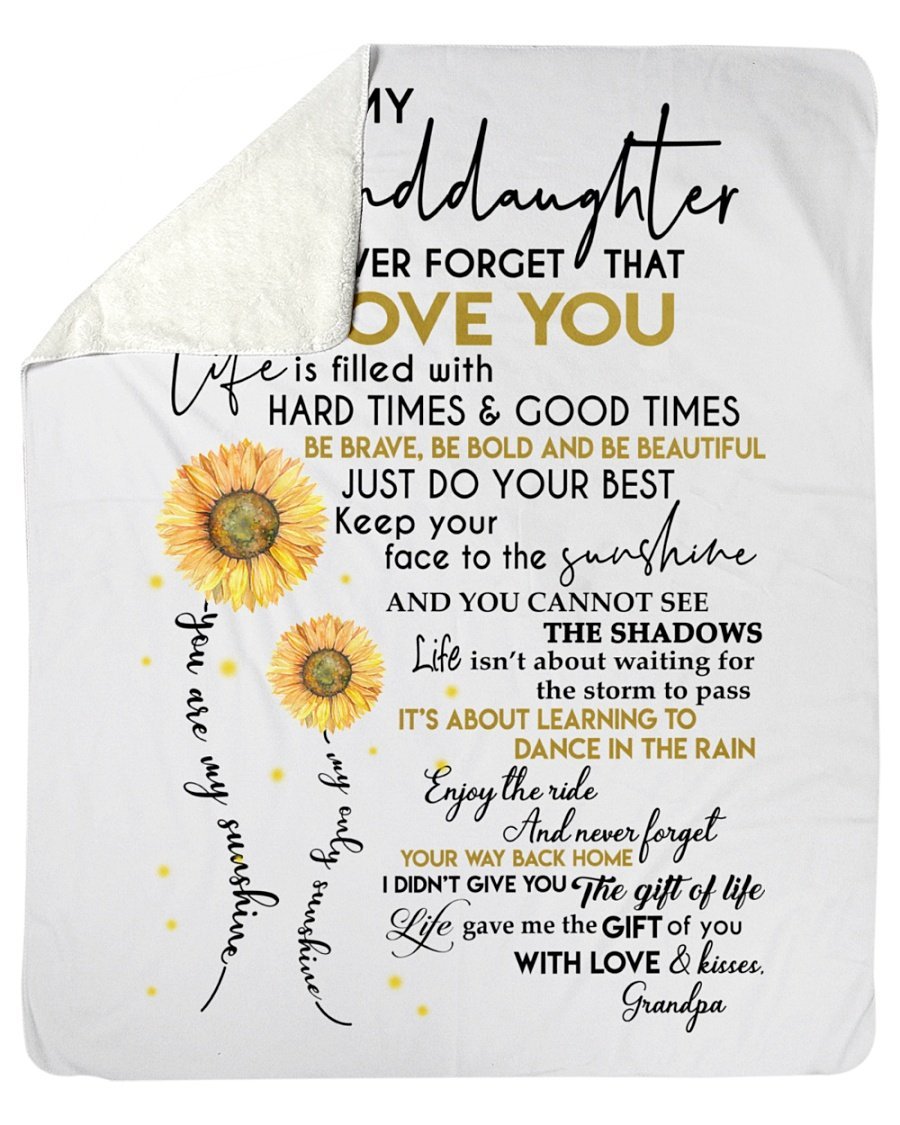 MY
ddaughter
VER FORGET THAT
OVE YOU
Life is filled with
HARD TIMES & GOOD TIMES
BE BRAVE, BE BOLD AND BE BEAUTIFUL
JUST DO YOUR BEST
Keep your
face to the sunshine
AND YOU CANNOT SEE
THE SHADOWS
Life isn't about waiting for
the storm to pass
IT'S ABOUT LEARNING TO
DANCE IN THE RAIN
Enjoy the ride
And never forget
YOUR WAY BACK HOME
I DIDN'T GIVE YOU The gift of life
Life gave me the GIFT of you
WITH LOVE & kisses,
Grandpa
you are my sunshine
my only sunshine